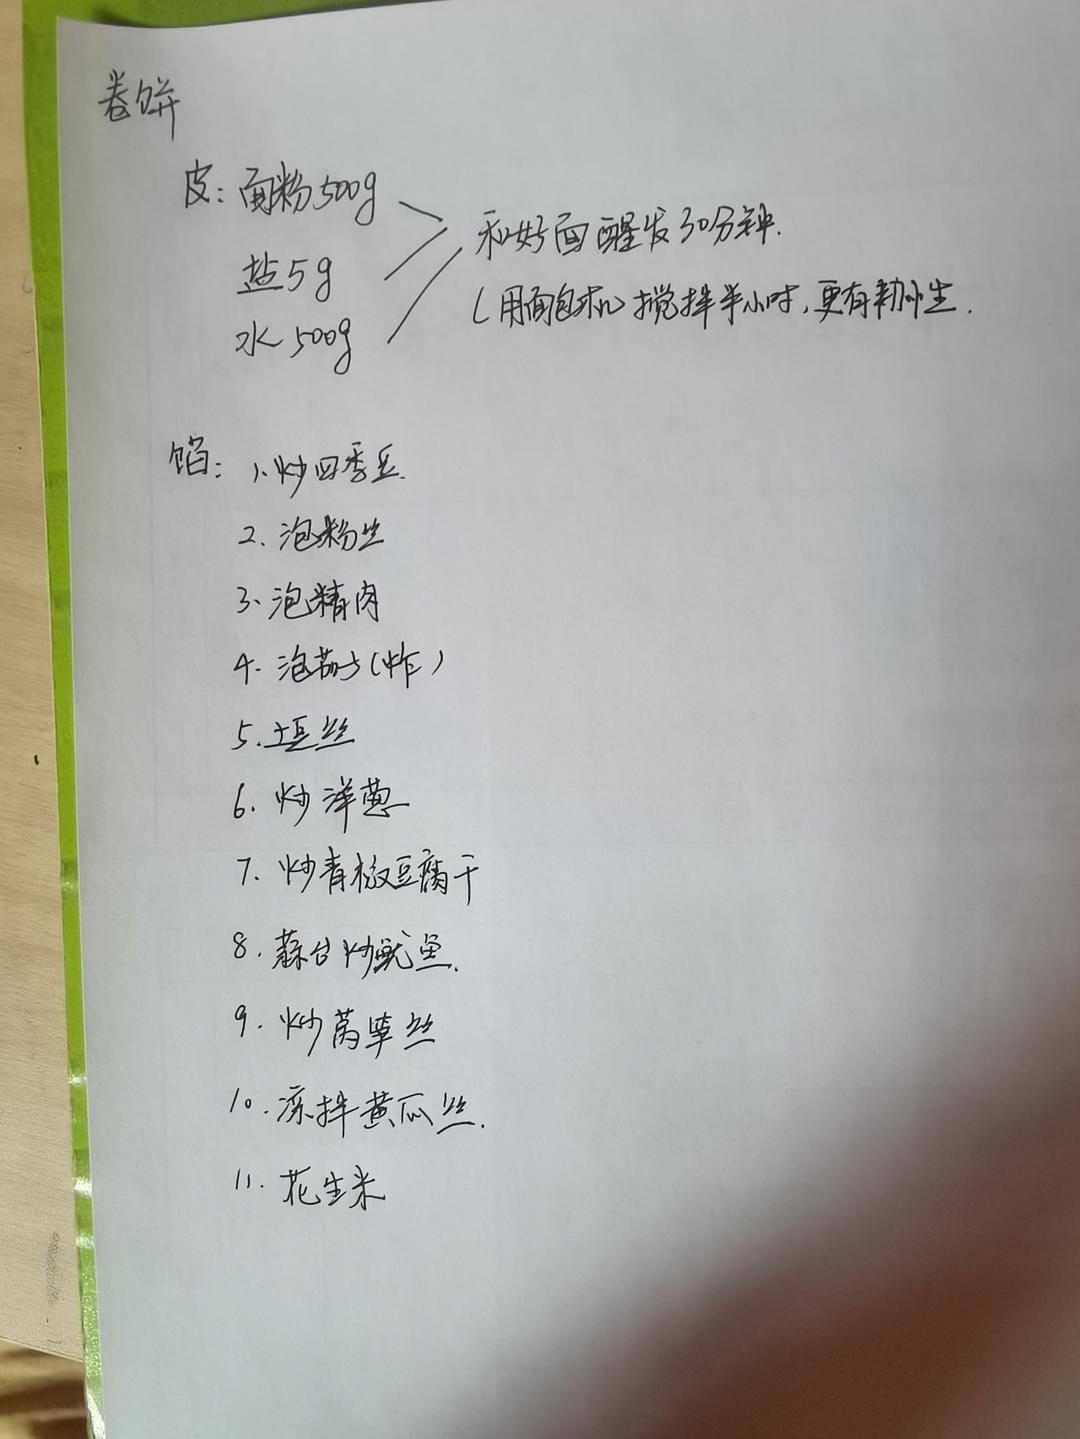 卷饼
皮：面粉500g
盐5g
水500g
和好面醒发30分钟.
(用面包机)搅拌半小时,更有韧性.
馅：1.炒四季豆.
2.泡粉丝
3.泡精肉
4.泡茄子(炸)
5.土豆丝
6.炒洋葱
7.炒青椒豆腐干
8.蒜台炒鱿鱼.
9.炒莴笋丝
10.凉拌黄瓜丝.
11.花生米